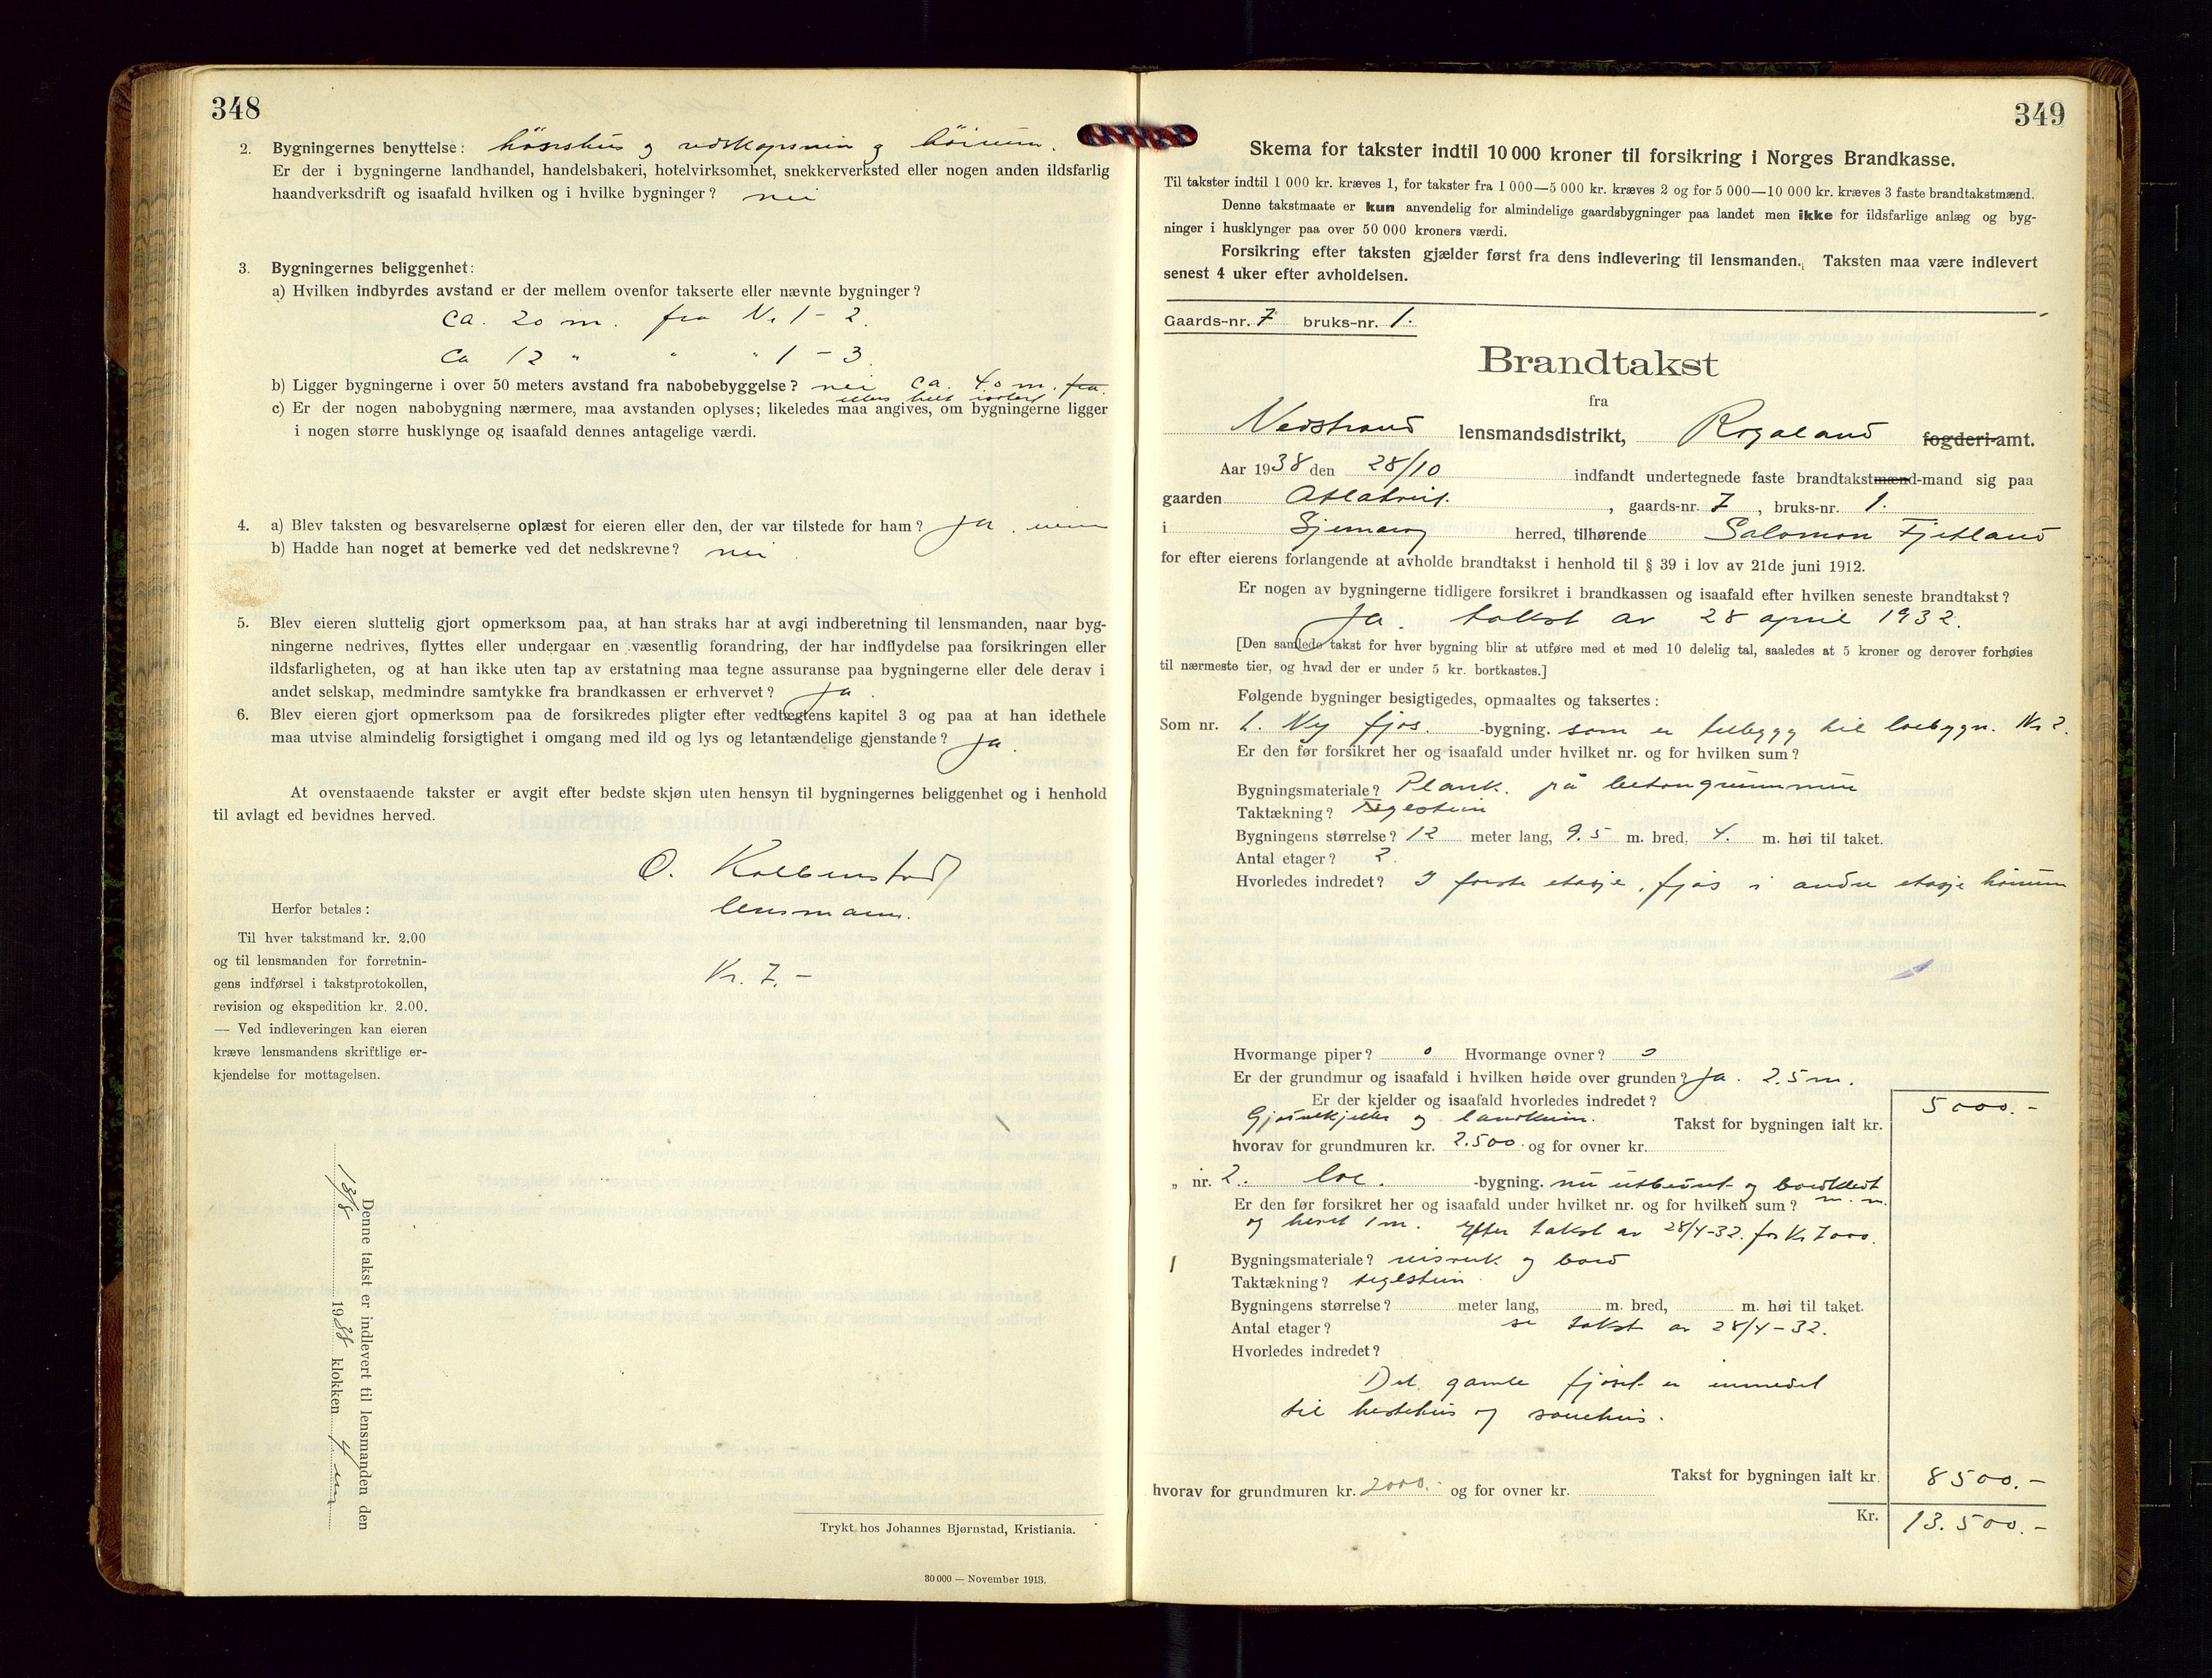 348
2. Bygningernes benyttelse: hönsehus og redskapsrum og höirum.
Er der i bygningerne landhandel, handelsbakeri, hotelvirksomhet, snekkerverksted eller nogen anden ildsfarlig
haandverksdrift og isaafald hvilken og i hvilke bygninger? nei
3. Bygningernes beliggenhet:
a) Hvilken indbyrdes avstand er der mellem ovenfor takserte eller nævnte bygninger?
ca. 20 m. fra Nr 1 - 2.
ca 12 " " " 1 - 3.
b) Ligger bygningerne i over 50 meters avstand fra nabobebyggelse? nei ca. 40 m. fra
ellers helt isolert
c) Er der nogen nabobygning nærmere, maa avstanden oplyses; likeledes maa angives, om bygningerne ligger
i nogen større husklynge og isaafald dennes antagelige værdi.
4. a) Blev taksten og besvarelserne oplæst for eieren eller den, der var tilstede for ham? Ja.
b) Hadde han noget at bemerke ved det nedskrevne? nei
5. Blev eieren sluttelig gjort opmerksom paa, at han straks har at avgi indberetning til lensmanden, naar byg-
ningerne nedrives, flyttes eller undergaar en væsentlig forandring, der har indflydelse paa forsikringen eller
ildsfarligheten, og at han ikke uten tap av erstatning maa tegne assuranse paa bygningerne eller dele derav i
andet selskap, medmindre samtykke fra brandkassen er erhvervet? Ja.
6. Blev eieren gjort opmerksom paa de forsikredes pligter efter vedtægtens kapitel 3 og paa at han idethele
maa utvise almindelig forsigtighet i omgang med ild og lys og letantændelige gjenstande? Ja.
At ovenstaaende takster er avgit efter bedste skjøn uten hensyn til bygningernes beliggenhet og i henhold
til avlagt ed bevidnes herved.
O. Kolbenstvedt
lensmann.
Kr. 7.-
Herfor betales:
Til hver takstmand kr. 2.00
og til lensmanden for forretnin-
gens indførsel i takstprotokollen,
revision og ekspedition kr. 2.00.
— Ved indleveringen kan eieren
kræve lensmandens skriftlige er-
kjendelse for mottagelsen.
Denne takst er indlevert til lensmanden den
13/8 1938 klokken 4 em
Trykt hos Johannes Bjørnstad, Kristiania.
30 000 — November 1913.
349
Skema for takster indtil 10 000 kroner til forsikring i Norges Brandkasse.
Til takster indtil 1 000 kr. kræves 1, for takster fra 1 000—5 000 kr. kræves 2 og for 5 000—10 000 kr. kræves 3 faste brandtakstmænd.
Denne takstmaate er kun anvendelig for almindelige gaardsbygninger paa landet men ikke for ildsfarlige anlæg og byg-
ninger i husklynger paa over 50 000 kroners værdi.
Forsikring efter taksten gjælder først fra dens indlevering til lensmanden. Taksten maa være indlevert
senest 4 uker efter avholdelsen.
Gaards-nr. 7 bruks-nr. 1.
Brandtakst
fra
Nedstrand lensmandsdistrikt, Rogaland fogderi-amt.
Aar 1938 den 28/10 indfandt undertegnede faste brandtakstmænd-mand sig paa
gaarden Atlatveit, gaards-nr. 7, bruks-nr. 1.
i Sjernarøy herred, tilhørende Salomon Fjetland
for efter eierens forlangende at avholde brandtakst i henhold til § 39 i lov av 21de juni 1912.
Er nogen av bygningerne tidligere forsikret i brandkassen og isaafald efter hvilken seneste brandtakst?
Ja. takst av 28 april 1932.
[Den samlede takst for hver bygning blir at utføre med et med 10 delelig tal, saaledes at 5 kroner og derover forhøies
til nærmeste tier, og hvad der er under 5 kr. bortkastes.]
Følgende bygninger besigtigedes, opmaaltes og taksertes:
Som nr. 1. Ny fjøs. -bygning. som er tilbygg til loebygn. Nr 2.
Er den før forsikret her og isaafald under hvilket nr. og for hvilken sum?
Bygningsmateriale? Plank. på betongrunnmur
Taktækning? Teglstein
Bygningens størrelse? 12 meter lang, 9.5 m. bred, 4. m. høi til taket.
Antal etager? 2.
Hvorledes indredet? I første etasje, fjøs i andre etasje höirum
Hvormange piper? 0 Hvormange ovner? 0
Er der grundmur og isaafald i hvilken høide over grunden? Ja. 2.5 m.
Er der kjelder og isaafald hvorledes indredet?
Gjødselkjeller og landkum. Takst for bygningen ialt kr. 5000.-
hvorav for grundmuren kr. 2.500.- og for ovner kr.
" nr. 2. loe. -bygning. nu utbedret og bordkledt
Er den før forsikret her og isaafald under hvilket nr. og for hvilken sum? m. m.
og hevet 1 m. efter takst av 28/4-32. for Kr 7000.
Bygningsmateriale? reisverk og bord
Taktækning? teglstein
Bygningens størrelse? meter lang, m. bred, m. høi til taket.
Antal etager? se takst av 28/4-32.
Hvorledes indredet?
Det gamle fjøset er innredet
til hestehus og sauehus.
Takst for bygningen ialt kr. 8500.-
hvorav for grundmuren kr. 2000.- og for ovner kr.
Kr. 13.500.-